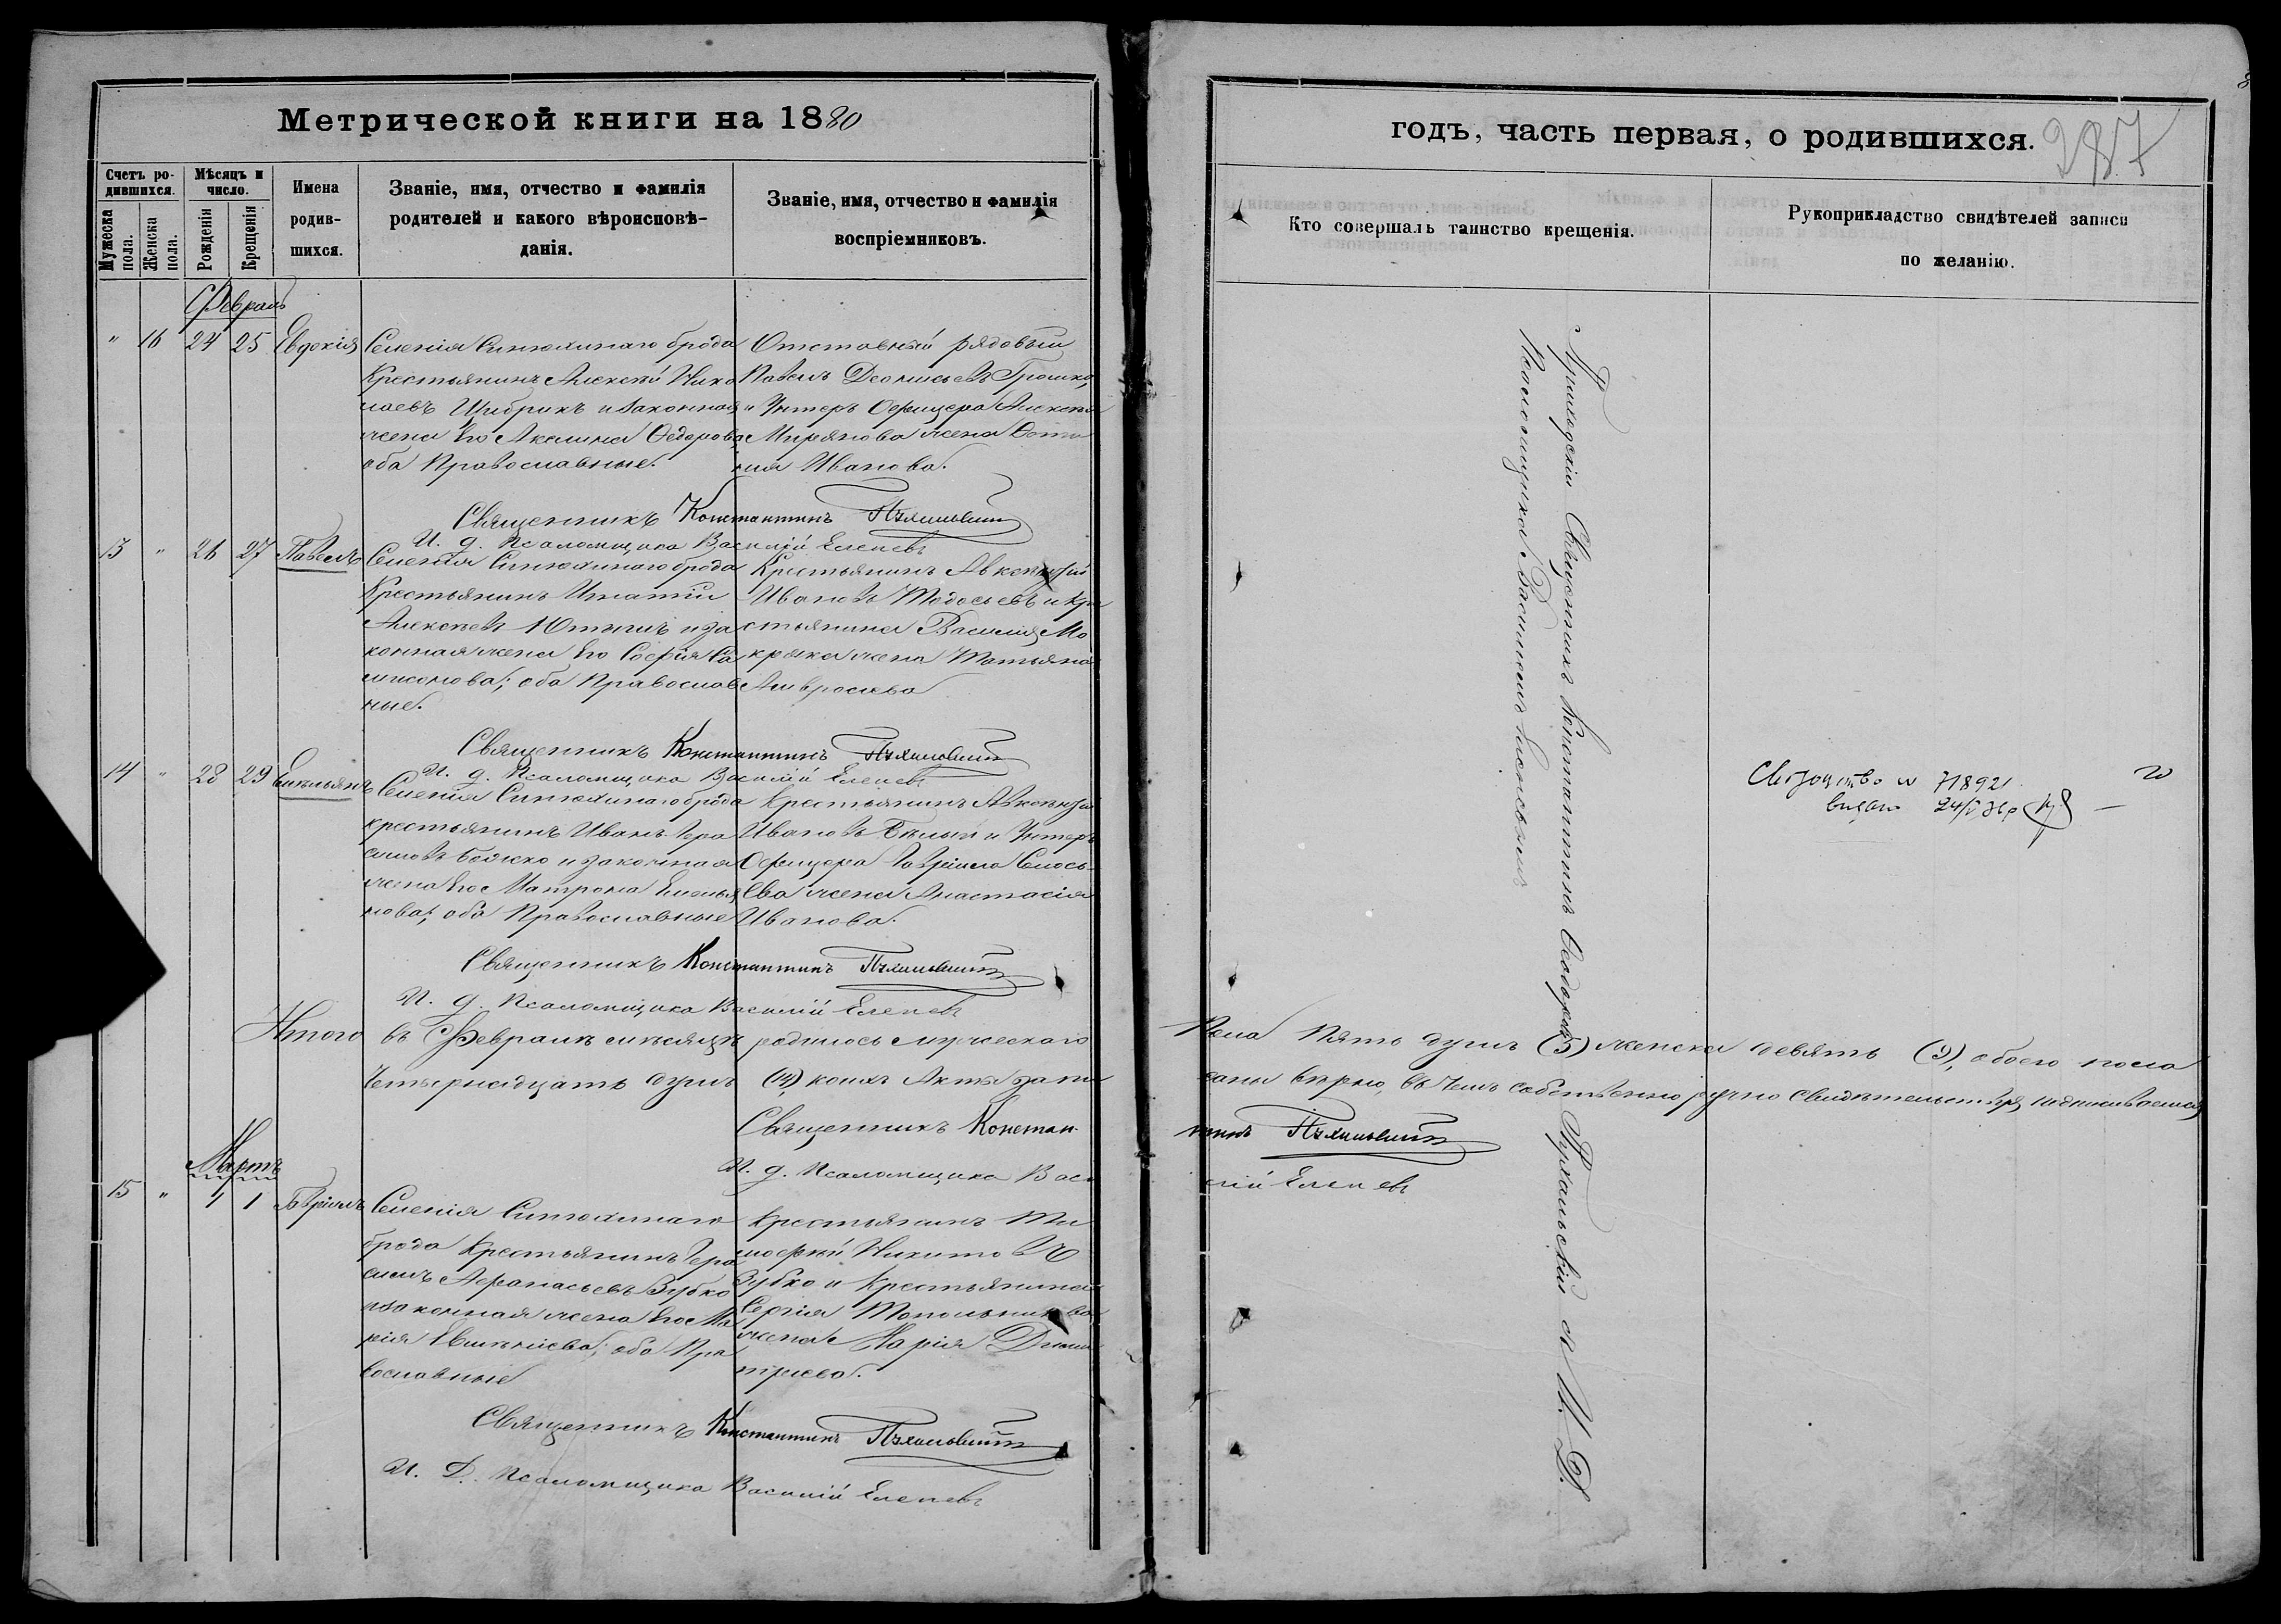 Метрической книги на 1880
Счетъ ро-
дившихся.
Мѣсяцъ и
число.
Мужеска
пола.
Женска
пола.
Рожденія
Крещенія
Имена
родив-
шихся.
Званіе, имя, отчество и фамилія
родителей и какого вѣроисповѣ-
данія.
Званіе, имя, отчество и фамилія
воспріемниковъ.
Февраль
" 16 24 25 Евдокія Селенія Синюхинаго брода
Крестьянинъ Алексѣй Нико
лаевъ Шибрикъ и законная
жена его Акилина Ѳедорова
оба Православные.
Отставный рядовый
Павелъ Деонисьевъ Грошко,
и Унтеръ Офицера Алексѣя
жена
Иванова.
Священникъ Константинъ
И. д. Псаломщика Василій Еленевъ
13 " 26 27 Павелъ Селенія Синюхинаго брода
Крестьянинъ Игнатій
Алексѣевъ и за
конная жена его Софія Са
мисонова; оба Православ
ные.
Крестьянинъ Авксентій
Ивановъ Тодосьевъ и Кре
стьянина Василія Мо
кряка жена Татьяна
Амвросіева
Священникъ Константинъ
И. д. Псаломщика Василій Еленевъ
14 " 28 29 Емельянъ Селенія Синюхинаго брода
крестьянинъ Иванъ Гера
симовъ Божко и законная
жена его Матрона Емелья
нова; оба Православные
Крестьянинъ Авксентій
Ивановъ Бѣлый и Унтеръ
Офицера Гавріила
жена Анастасія
Иванова.
Священникъ Константинъ
И. д. Псаломщика Василій Еленевъ
Итого въ Февралѣ мѣсяцѣ родилось мужескаго
Четырнадцать душъ (14) коихъ Акты запи
Священникъ Констан
И. д. Псаломщика Васи
Мартъ
15 " 1 1 Гавріилъ Селенія Синюхинаго
брода Крестьянинъ Гера
симъ Афанасьевъ Зубко
и законная жена его Ма
рія Евменіева; оба Пра
вославные
Крестьянинъ Ти
мофей Никитовъ
Зубко и Крестьянина
Сергія Топольникова
жена Марія Дими
тріева.
Священникъ Константинъ
И. Д. Псаломщика Василій Еленевъ
годъ, часть первая, о родившихся.
287
Кто совершалъ таинство крещенія.
Рукоприкладство свидѣтелей записи
по желанію.
Приходскій Священникъ Константинъ и И. Д.
Псаломщика Василіемъ Еленевымъ
718921
видано 24/V
пола пять душъ (5) женска девять (9), обоего пола
саны вѣрно, въ чемъ собственноручно свидѣтельствуя подписываемся
тинъ
лій Еленевъ